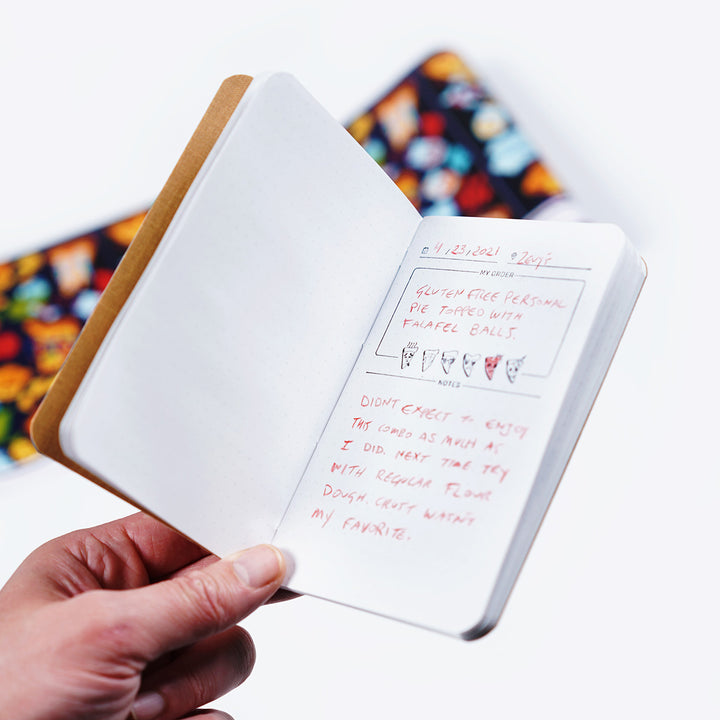 4,23,2021 Zevy's
MY ORDER
GLUTEN FREE PERSONAL
PIE TOPPED WITH
FALAFEL BALLS.
NOTES
DIDNT EXPECT TO ENJOY
THIS COMBO AS MUCH AS
I DID. NEXT TIME TRY
WITH REGULAR FLOUR
DOUGH. CRUST WASN'T
MY FAVORITE.